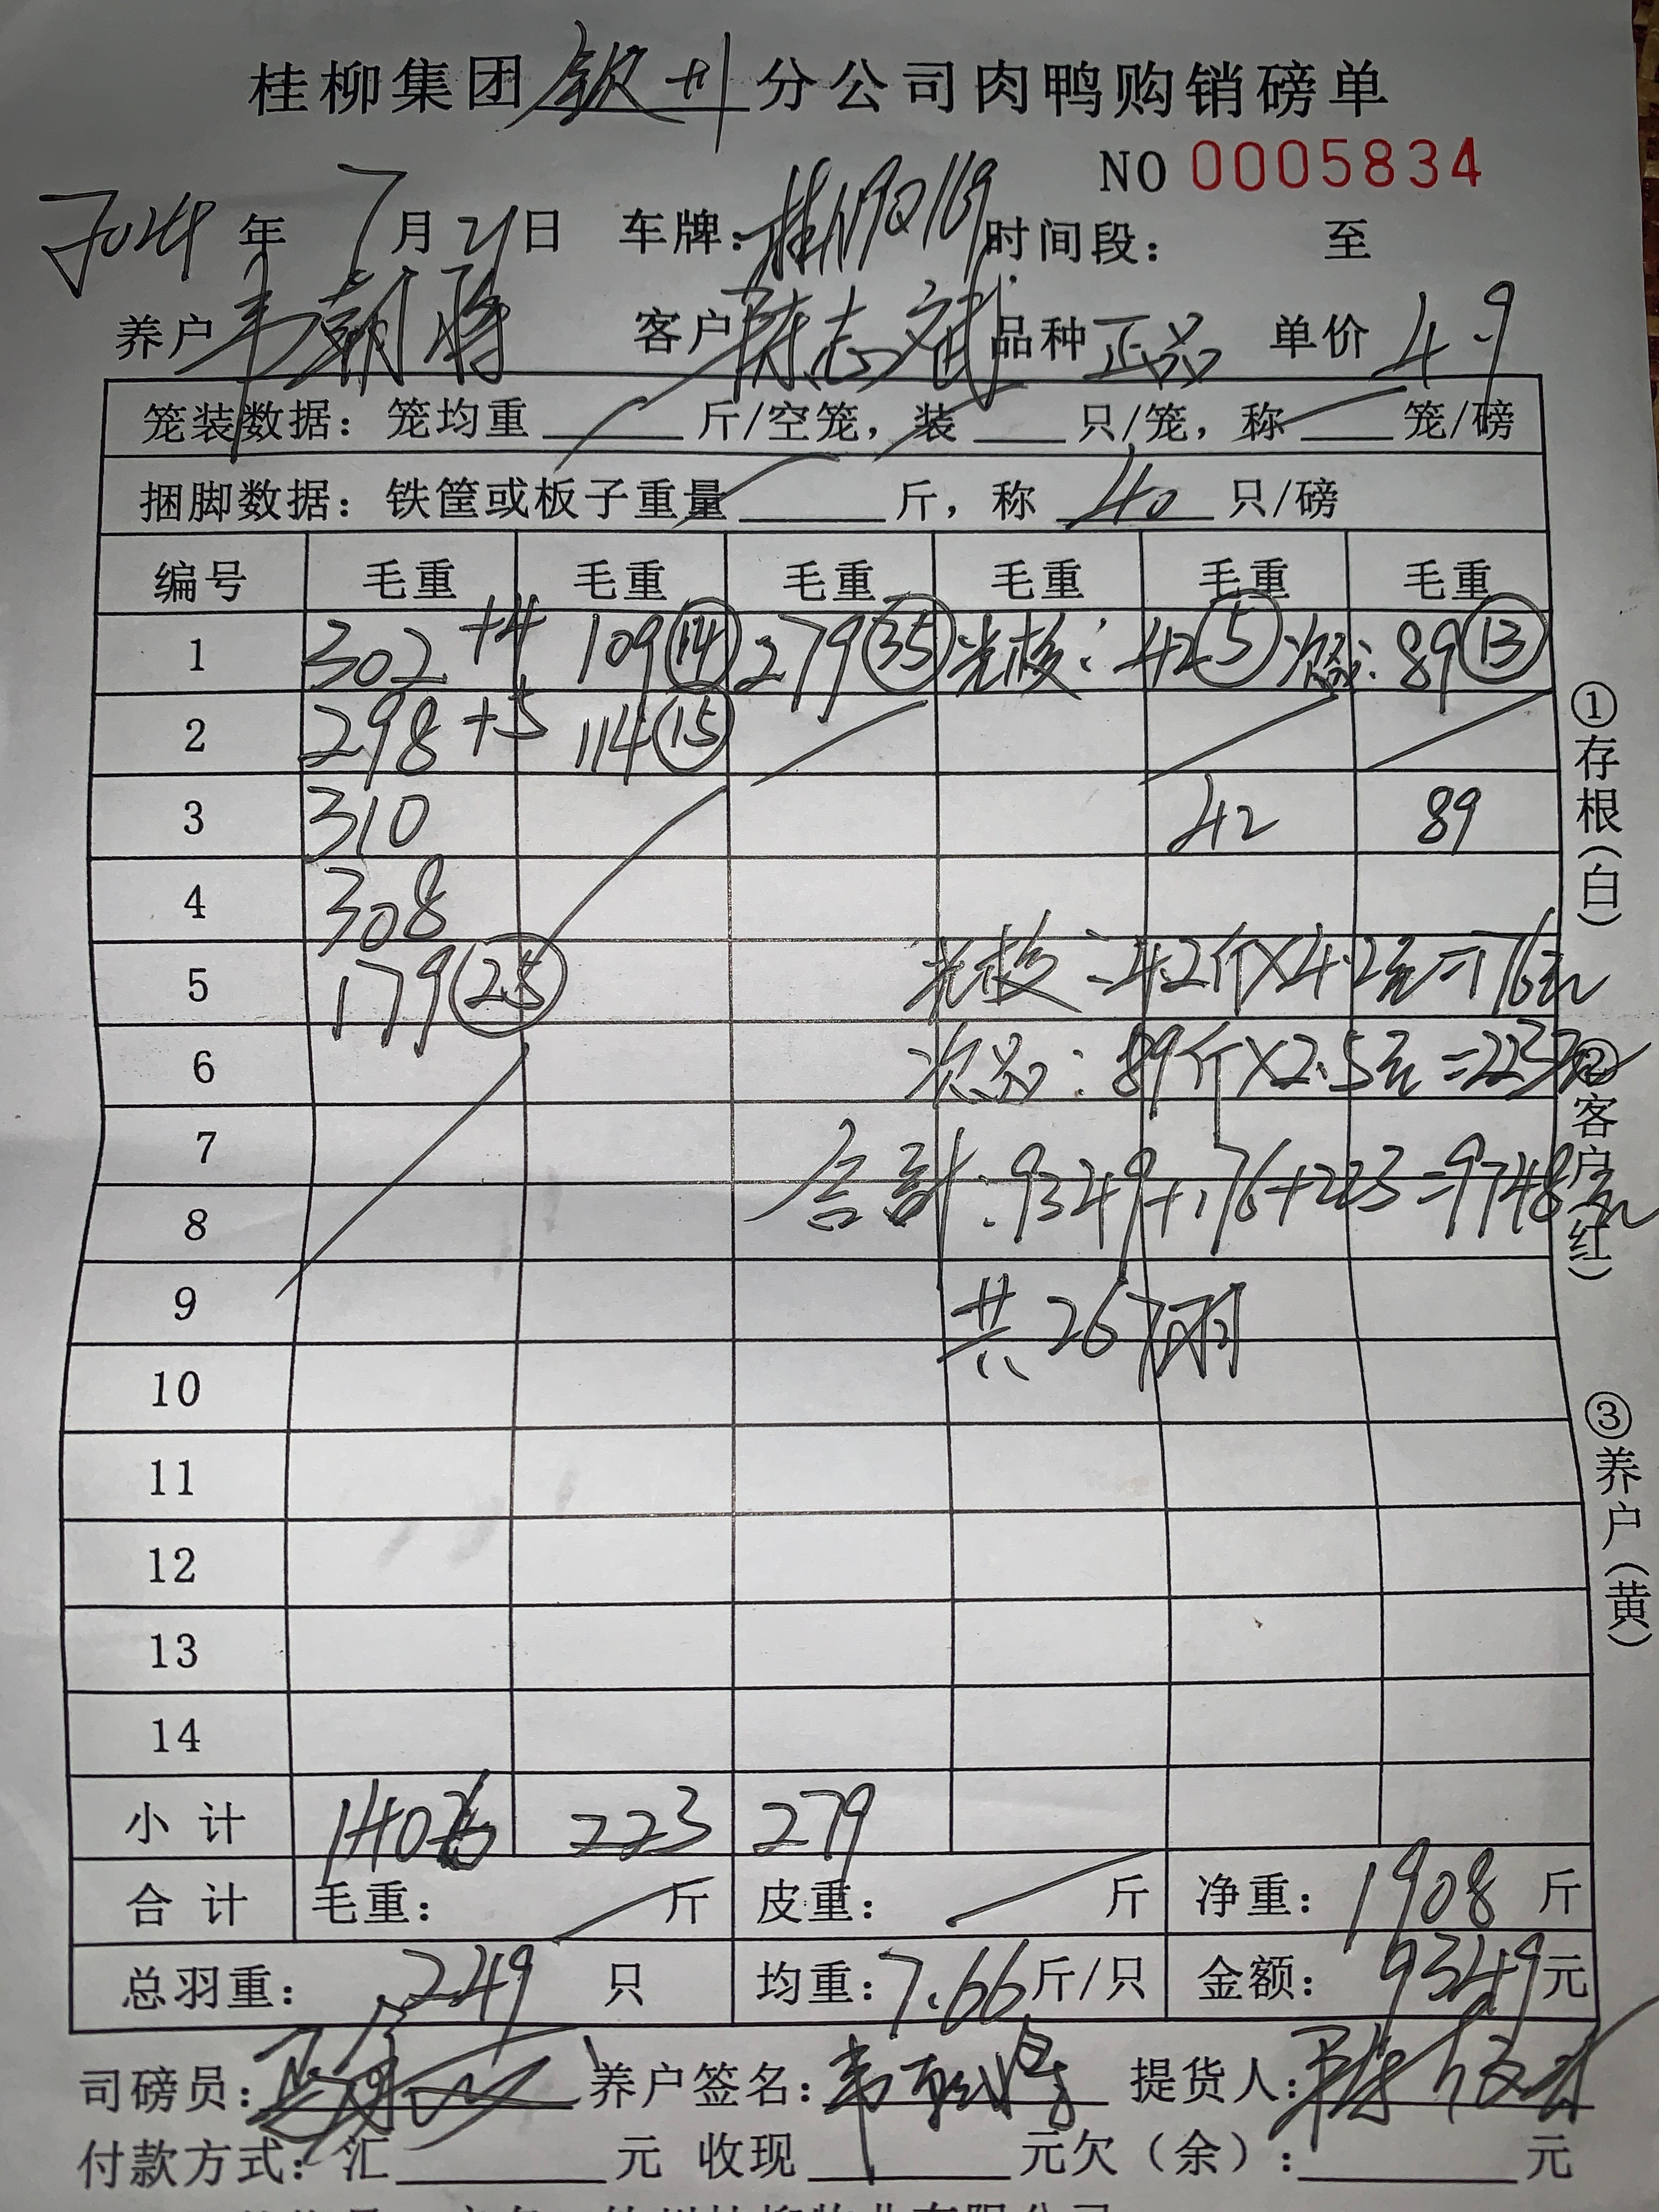 桂柳集团钦州分公司肉鸭购销磅单
NO 0005834
2024年7月21日 车牌:桂N9Q169 时间段: 至
养户韦朝将 客户陈志斌 品种正品 单价4.9
笼装数据: 笼均重 斤/空笼, 装 只/笼, 称 笼/磅
捆脚数据: 铁筐或板子重量 斤, 称 40 只/磅
编号 毛重 毛重 毛重 毛重 毛重 毛重
1 302+4 109⑭ 279㉟ 光校: 42⑤ 次品: 89⑬
2 298+5 114⑮
3 310 42 89
4 308
5 179㉕ 光校: 42斤×4.2元=176元
6 次品: 89斤×2.5元=223元
7 合計: 9349+176+223=9748元
8
9 共267羽
10
11
12
13
14
小计 1406 223 279
合计 毛重: 斤 皮重: 斤 净重: 1908 斤
总羽重: 249 只 均重: 7.66 斤/只 金额: 9349元
司磅员: 养户签名: 提货人:
付款方式: 汇 元 收现 元欠(余): 元
①存根(白)
②客户(红)
③养户(黄)